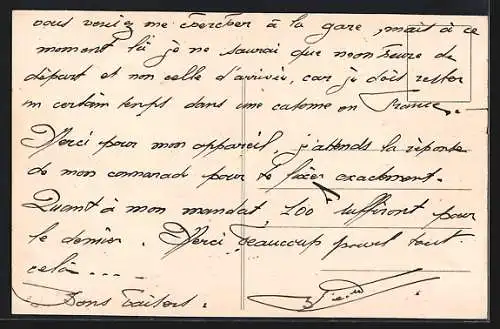 vous veniez me chercher à la gare, mais à ce
moment là je ne saurai que mon heure de
départ et non celle d'arrivée, car je dois rester
un certain temps dans une caserne en France.
Merci pour mon appareil, j'attends la réponse
de mon camarade pour te fixer exactement.
Quant à mon mandat, 100 suffiront pour
le dernier. Merci beaucoup pour tout
cela...
Bons baisers.